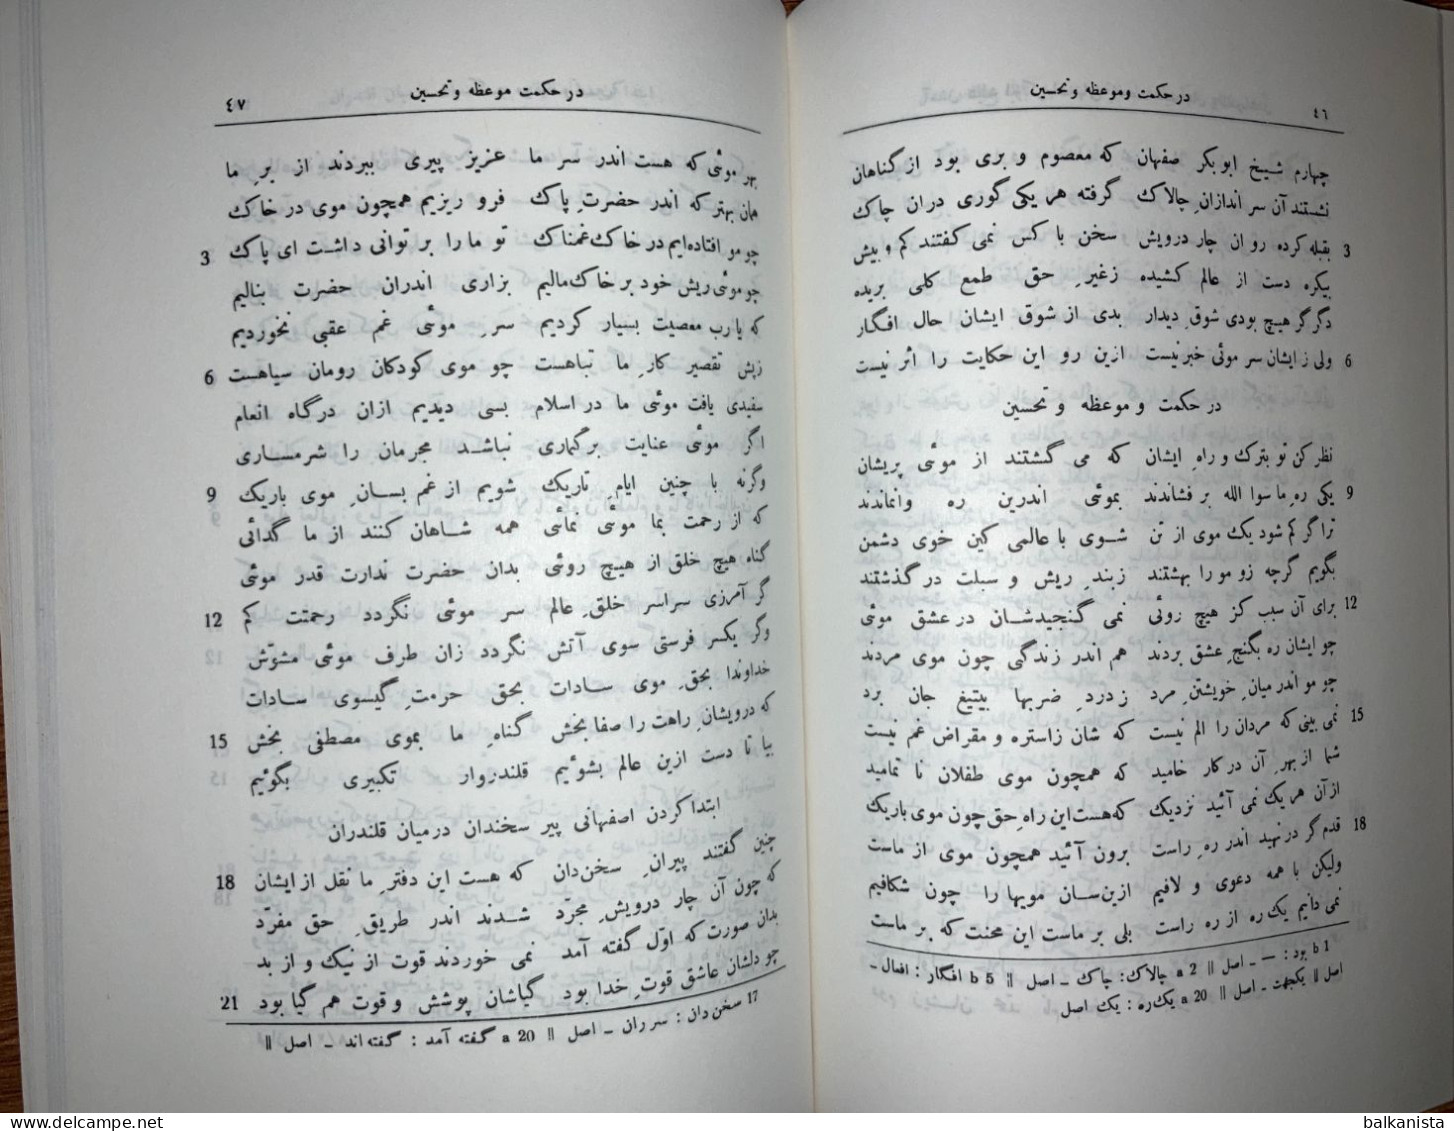 ٤٦
در حکمت و موعظه و تحسین
چهارم شیخ ابوبکر صفهان که معصوم و بری بود از گناهان
نشستند آن سر اندازانِ چالاک گرفته هر یکی گوری دران چاک
3 بقبله کرده رو ان چار درویش سخن با کس نمی کفتند کم و بیش
بیکره دست از عالم کشیده زغیرِ حق طمع کلی بریده
دگر گر هیچ بودی شوقِ دیدار بدی از شوق ایشان حال افگار
6 ولی ز ایشان سر موئی خبر نیست ازین رو این حکایت را اثر نیست
در حکمت و موعظه و تحسین
نظر کن تو بترك و راهِ ایشان که می گشتند از موئی پریشان
9 یکی ره ما سوا الله بر فشاندند بموئی اندرین ره وانماندند
ترا گر کم شود یك موی از تن شوی با عالمی کین خوی دشمن
بگویم گرچه زو مو را بهشتند زبند ریش و سبلت در گذشتند
12 برای آن سبب کز هیچ روئی نمی گنجیدشان در عشق موئی
چو ایشان ره بگنجِ عشق بردند هم اندر زندگی چون موی مردند
چو مو اندر میانِ خویشتن مرد زدردِ ضربها بیتیغ جان برد
15 نمی بینی که مردان را الم نیست که شان زاستره و مقراض غم نیست
شما از بهرِ آن در کار خامید که همچون موی طفلان نا تمامید
از آن هر یك نمی آئید نزدیك که هست این راهِ حق چون موی باریك
18 قدم گر در نهید اندر رهِ راست برون آئید همچون موی از ماست
ولیکن با همه دعوی و لافیم ازین سان مویها را چون شکافیم
نمی دانیم یك ره از ره راست بلی بر ماست این محنت که بر ماست
1 b بود : — ـ اصل || 2 a چالاك: چاك ـ اصل || 5 b افگار : افعال ـ
اصل || یکجهت ـ اصل || 20 a یك ره : یك اصل
٤٧
در حکمت موعظه و تحسین
بهر موئی که هست اندر سر ما عزیز پیری ببردند از برِ ما
همان بهتر که اندر حضرتِ پاك فرو ریزیم همچون موی در خاك
3 چو مو افتاده ایم در خاك غمناك تو ما را بر توانی داشت ای پاك
چو موئی ریش خود بر خاك مالیم بزاری اندران حضرت بنالیم
که یا رب معصیت بسیار کردیم سرِ موئی غم عقبی نخوردیم
6 زپش تقصیر کارِ ما تباهست چو موی کودکان رومان سیاهست
سفیدی یافت موئی ما در اسلام بسی دیدیم ازان درگاه انعام
اگر موئی عنایت برگماری نباشد مجرمان را شرمساری
9 وگرنه با چنین ایامِ تاریك شویم از غم بسانِ موی باریك
که از رحمت بما موئی نمائی همه شاهان کنند از ما گدائی
گناه هیچ خلق از هیچ روئی بدان حضرت ندارت قدر موئی
12 گر آمرزی سراسر خلقِ عالم سر موئی نگردد رحمتت کم
وگر یکسر فرستی سوی آتش نگردد زان طرف موئی مشوّش
خداوندا بحقِ موی سادات بحق حرمت گیسوی سادات
15 که درویشانِ راهت را صفا بخش گناهِ ما بموی مصطفی بخش
بیا تا دست ازین عالم بشوئیم قلندروار تکبیری بگوئیم
ابتدا کردن اصفهانی پیر سخندان درمیان قلندران
18 چنین گفتند پیرانِ سخن دان که هست این دفترِ ما نقل از ایشان
که چون آن چار درویشِ مجرّد شدند اندر طریقِ حق مفرّد
بدان صورت که اوّل گفته آمد نمی خوردند قوت از نیك و از بد
21 چو دلشان عاشق قوتِ خدا بود گیاشان پوشش و قوت هم گیا بود
17 سخن دان : سر ران ـ اصل || 20 a گفته آمد : گفته اند ـ اصل ||
balkanista